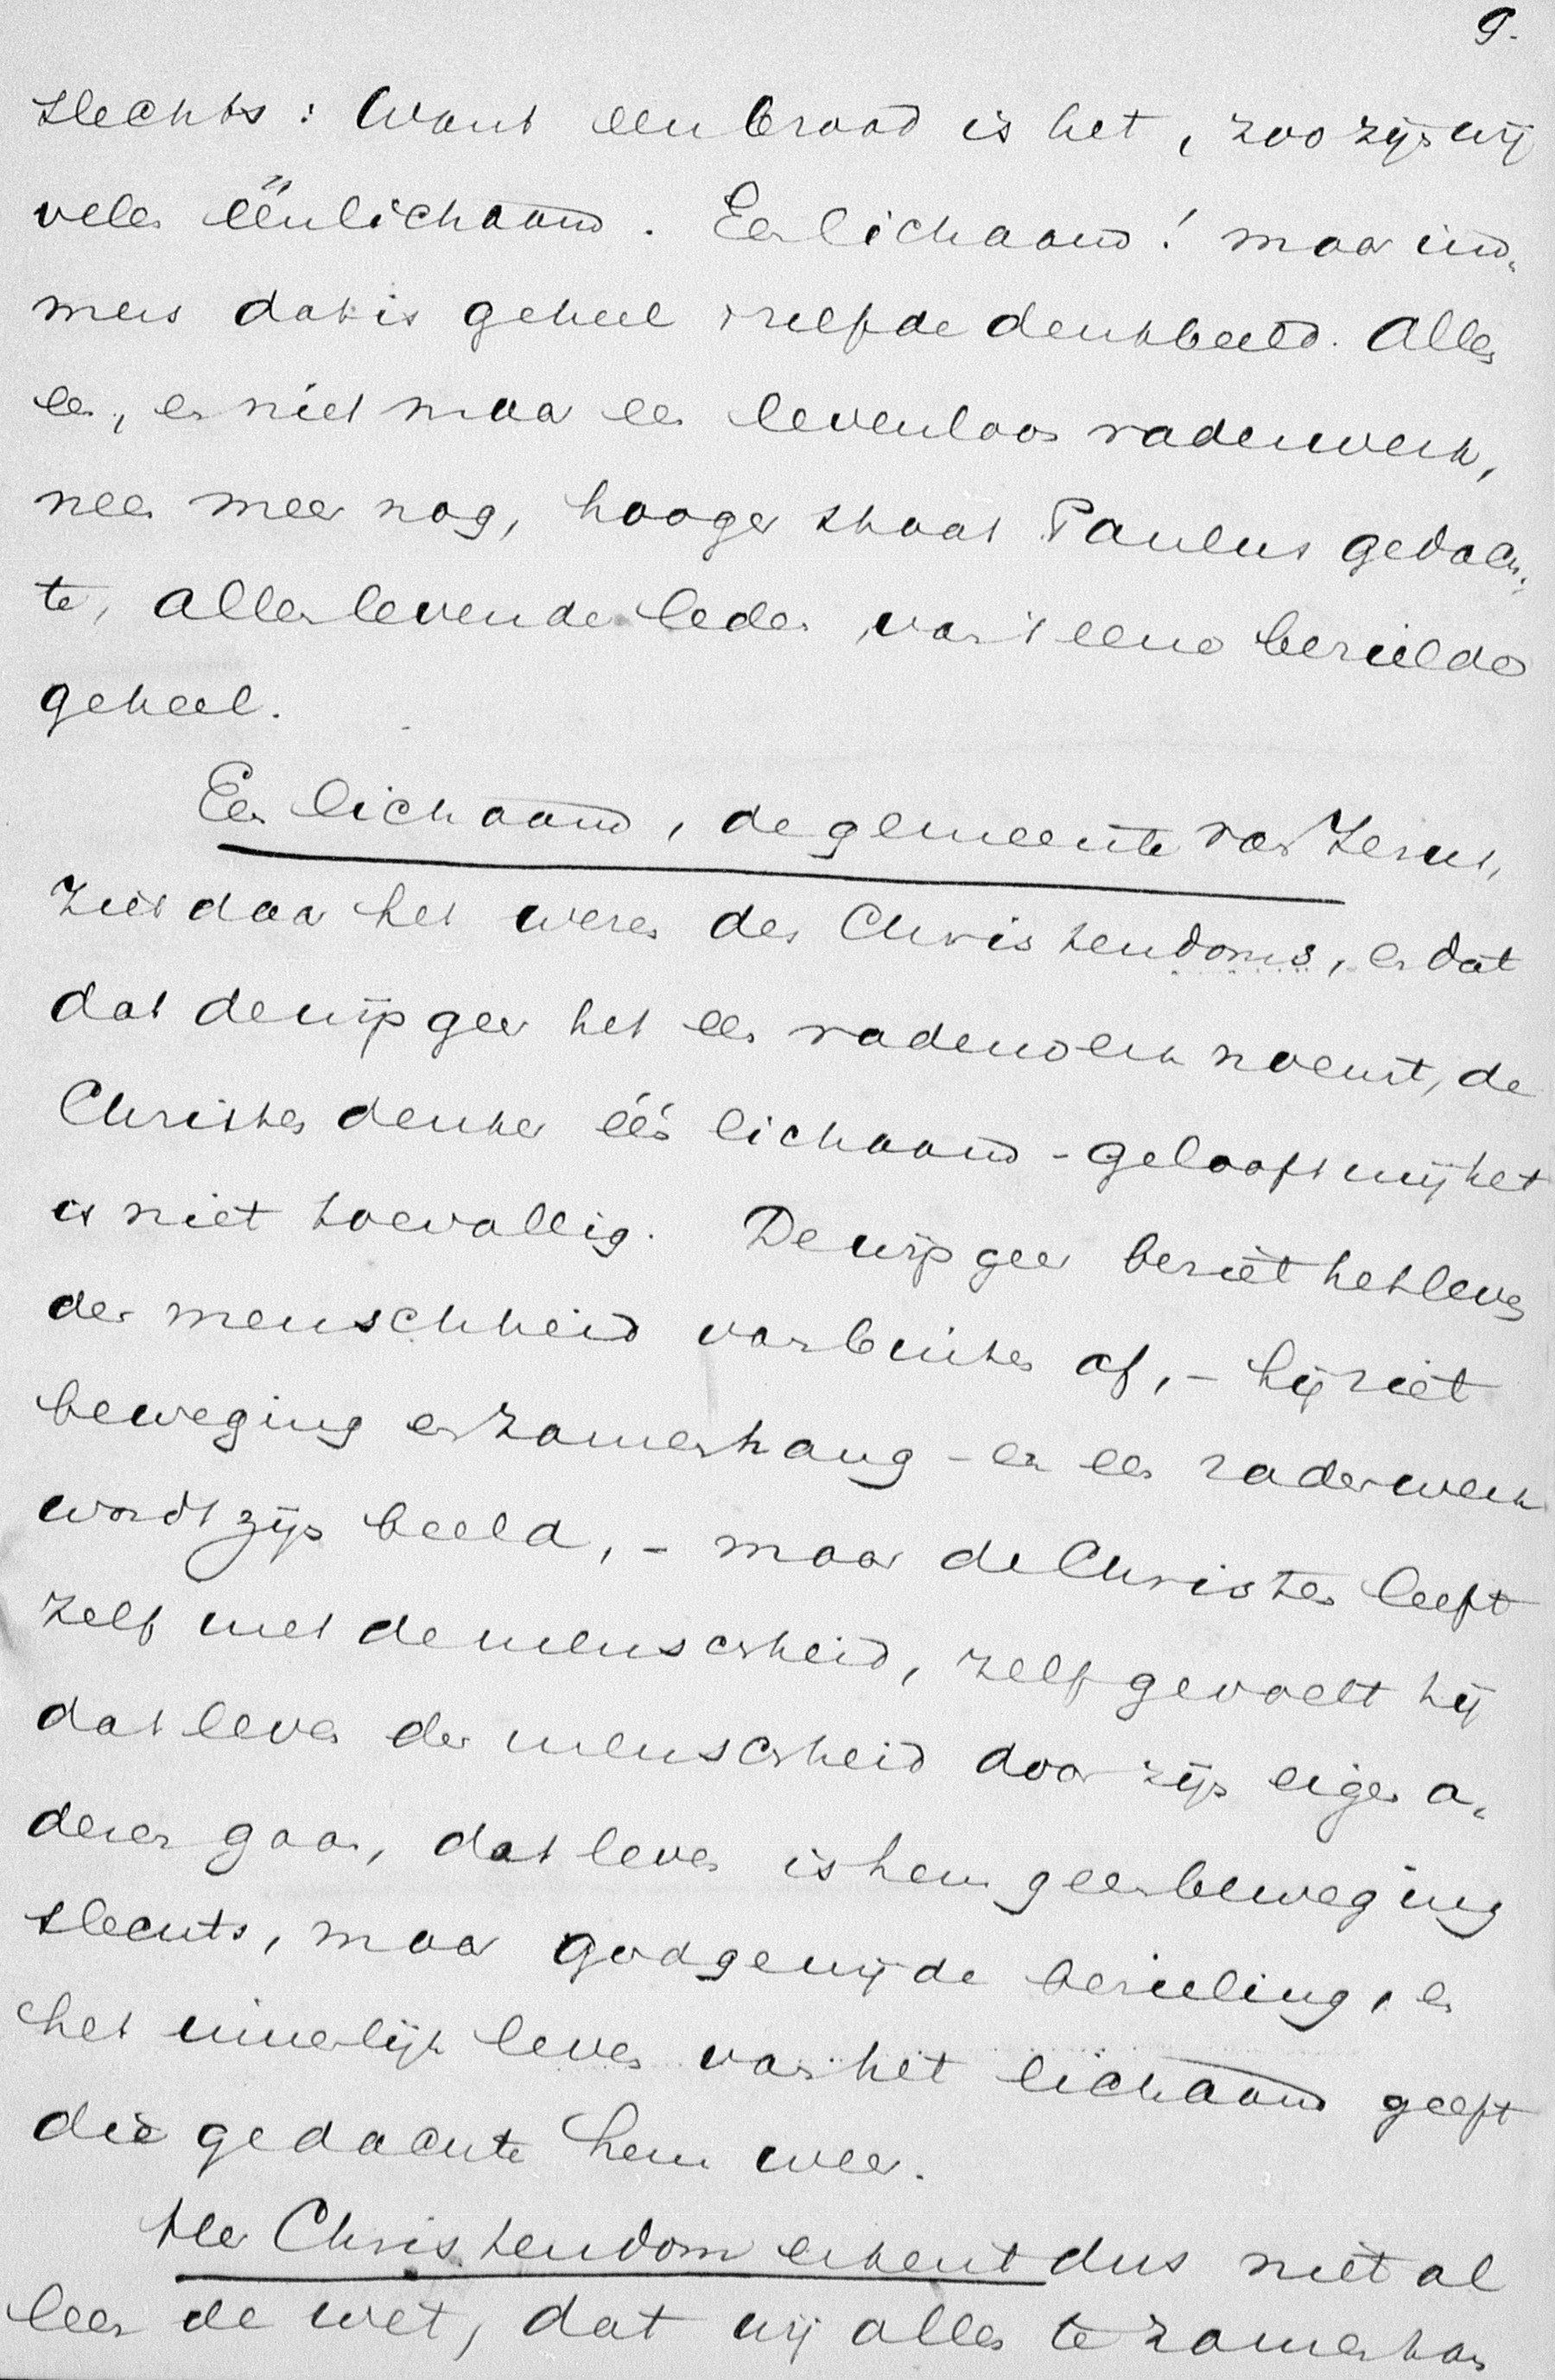 9.
slechts: Want een brood is het, zoo zijn wij
velen één lichaam. Een lichaam! maar im„
mers dat is geheel 'tzelfde denkbeeld. Allen
een, en niet maar een levenloos raderwerk,
neen meer nog, hooger staat Paulus gedach„
te, allen levende leden van 't eene bezielde
geheel.
Een lichaam, de gemeente van Jezus,
Ziet daar het wezen des Christendoms, en dat
dat de wijsgeer het een raderwerk noemt, de
Christen denker één lichaam - gelooft mij het
is niet toevallig. De wijsgeer beziet het leven
der menschheid van buiten af, - hij ziet
beweging en zamenhang - en een raderwerk
wordt zijn beeld, - maar de Christen leeft
zelf met de menschheid, zelf gevoelt hij
dat leven der menschheid door zijn eigen a„
deren gaan, dat leven is hem geen beweging
slechts, maar godgewijde bezieling, en
het innerlijk leven van het lichaam geeft
die gedachte hem weer.
Het Christendom erkent dus niet al
leen de wet, dat wij allen te zamen han